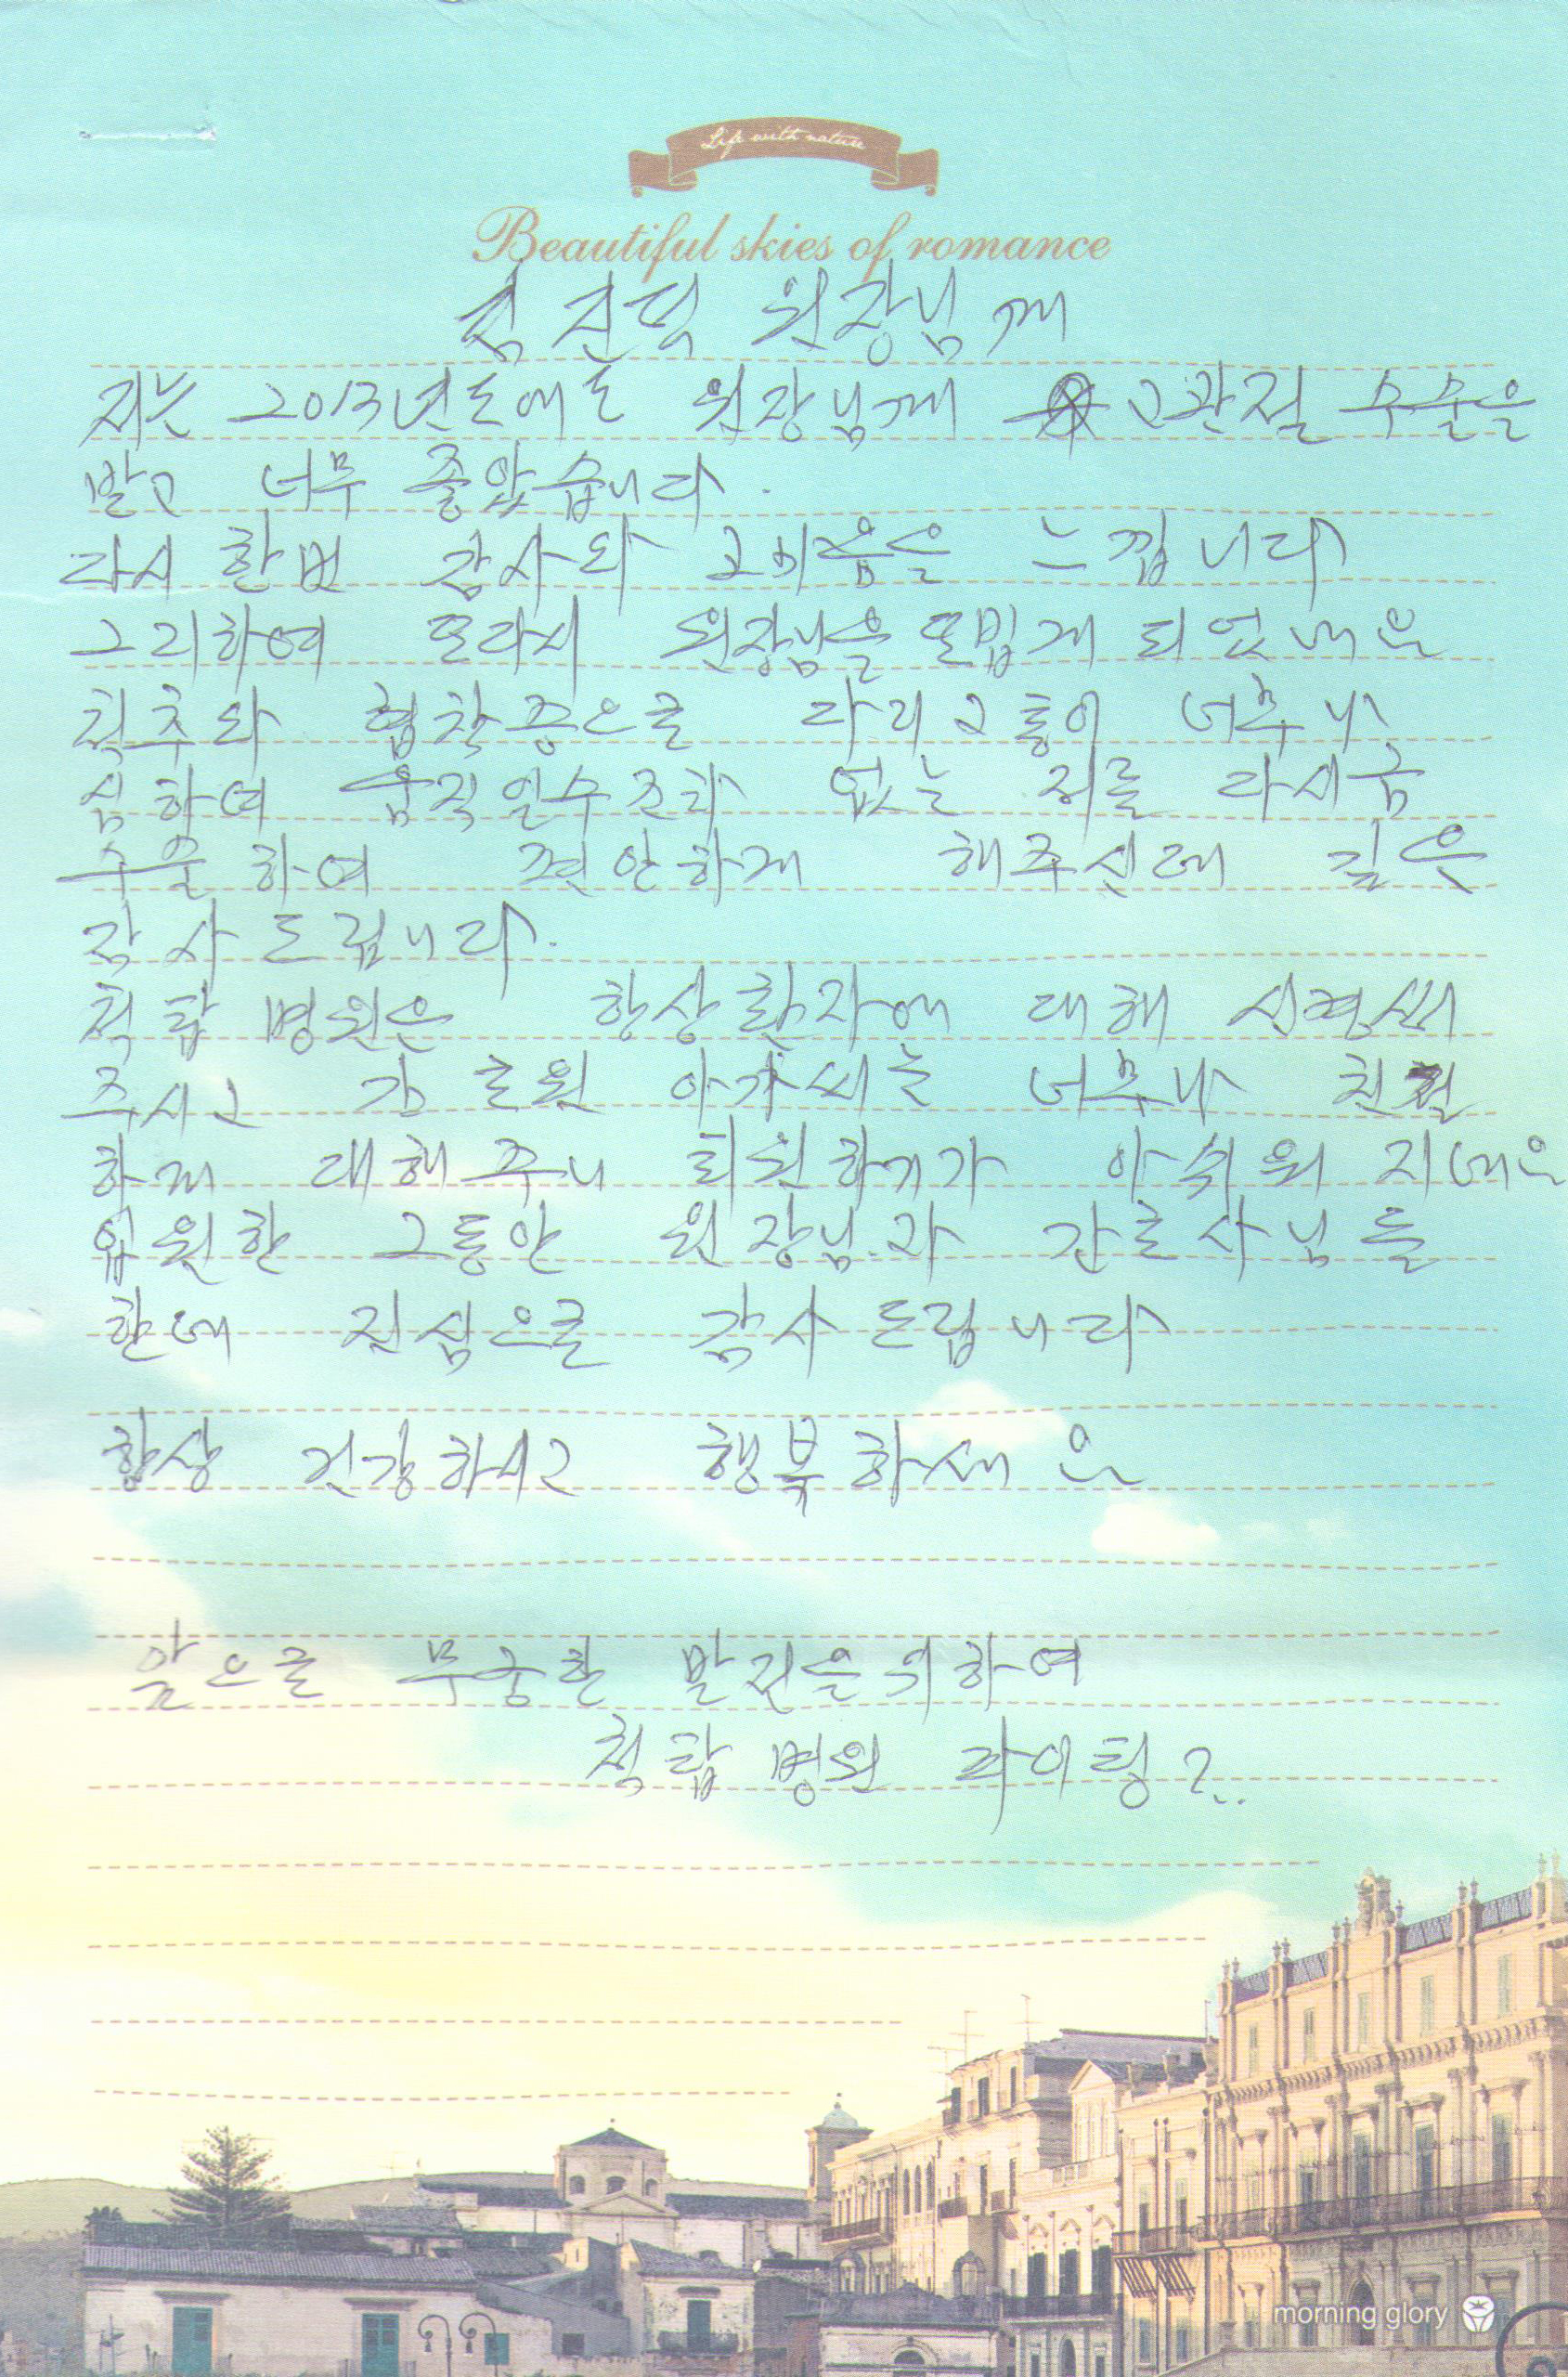 Life with nature
Beautiful skies of romance
원장님께
저는 2013년도에도 원장님께 고관절 수술을
받고 너무 좋았습니다.
다시 한번 감사와 고마움을 느낍니다
그리하여 또다시 원장님을 또뵙게 되었네요
척추와 협착증으로 다리고통이 너무나
심하여 움직일수조차 없는 저를 다시금
수술하여 편안하게 해주신데 깊은
감사드립니다.
척탑병원은 항상환자에 대해 신경써
주시고 간호원 아가씨는 너무나 친절
하게 대해주니 퇴원하기가 아쉬워지네요
입원한 그동안 원장님과 간호사님들
한데 진심으로 감사드립니다
항상 건강하시고 행복하세요
앞으로 무궁한 발전을위하여
척탑병원 파이팅?..
morning glory